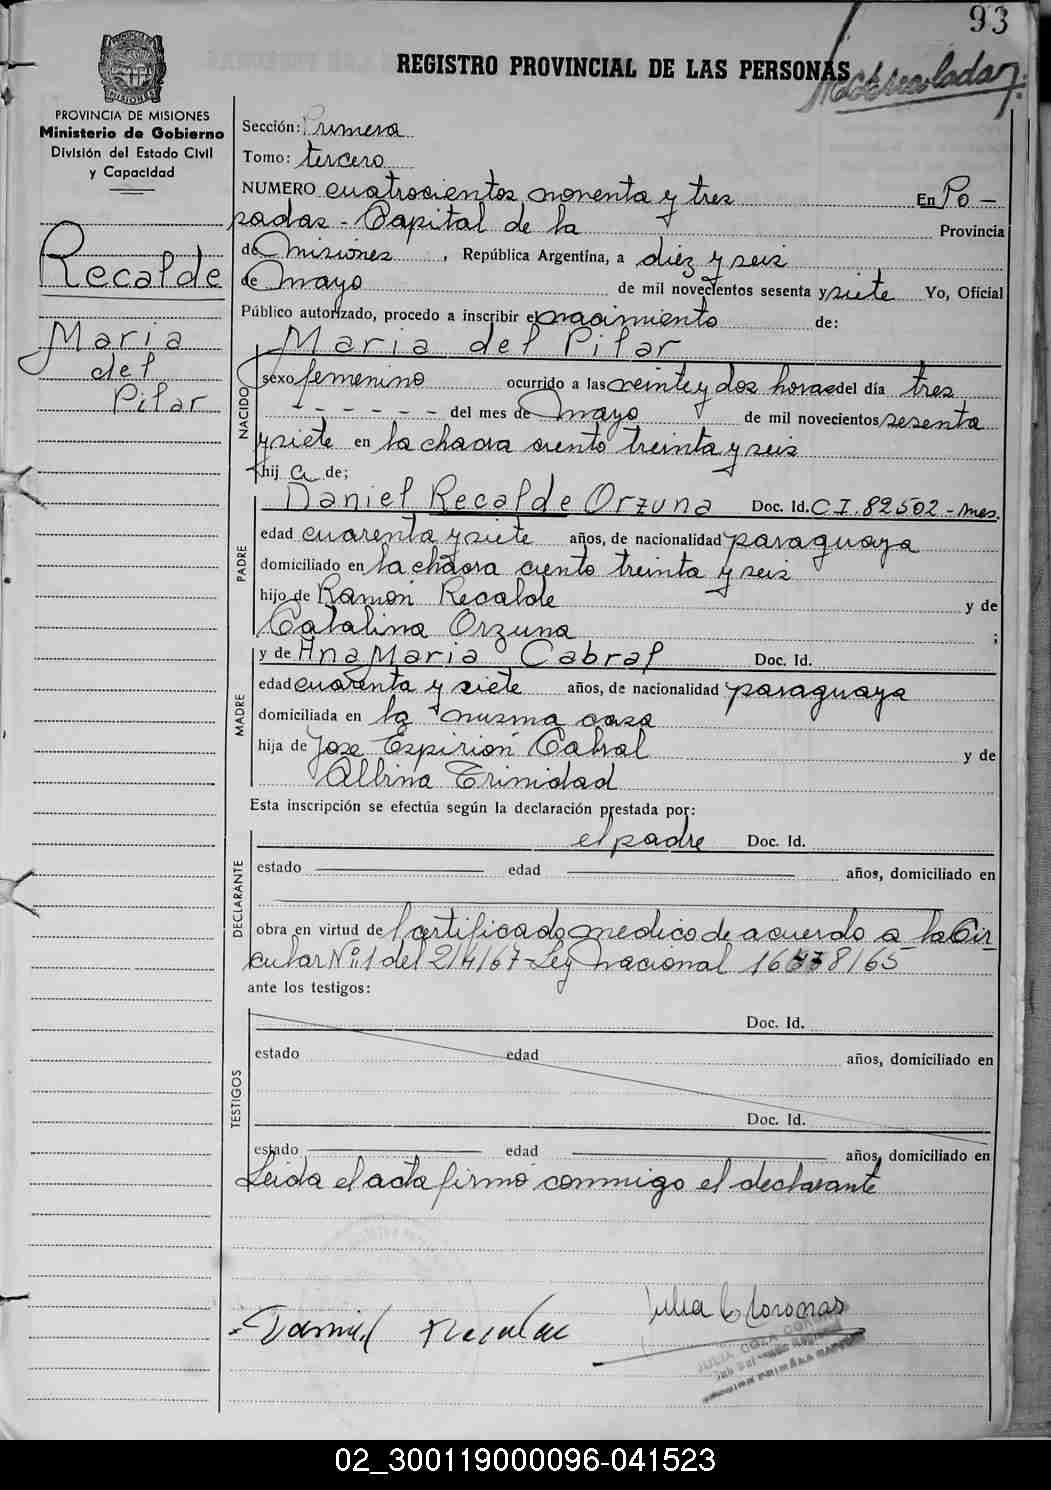 93
REGISTRO PROVINCIAL DE LAS PERSONAS
PROVINCIA DE MISIONES
Ministerio de Gobierno
División del Estado Civil
y Capacidad
Recalde
Maria
del
Pilar
Sección: Primera
Tomo: tercero
NUMERO cuatrocientos noventa y tres En Po-
sadas - Capital de la Provincia
de Misiones, República Argentina, a diez y seis
de mayo de mil novecientos sesenta y siete Yo, Oficial
Público autorizado, procedo a inscribir el nacimiento de:
Maria del Pilar
NACIDO
sexo femenino ocurrido a las veinte y dos horas del día tres
- - - - - - del mes de mayo de mil novecientos sesenta
y siete en la chacra ciento treinta y seis
hij a de;
PADRE
Daniel Recalde Orzuna Doc. Id. C I. 82502 - Mes.
edad cuarenta y siete años, de nacionalidad paraguaya
domiciliado en la chacra ciento treinta y seis
hijo de Ramón Recalde y de
Catalina Orzuna ;
MADRE
y de Ana Maria Cabral Doc. Id.
edad cuarenta y siete años, de nacionalidad paraguaya
domiciliada en la misma casa
hija de Jose Espirión Cabral y de
Albina Trinidad
Esta inscripción se efectúa según la declaración prestada por:
DECLARANTE
el padre Doc. Id.
estado edad años, domiciliado en
obra en virtud de certificado medico de acuerdo a la Cir
cular Nº 1 del 2/4/67 - Ley nacional
ante los testigos:
TESTIGOS
Doc. Id.
estado edad años, domiciliado en
Doc. Id.
estado edad años, domiciliado en
Leida el acta firmó conmigo el declarante
Daniel Recalde
Julia C
JULIA
02_300119000096-041523